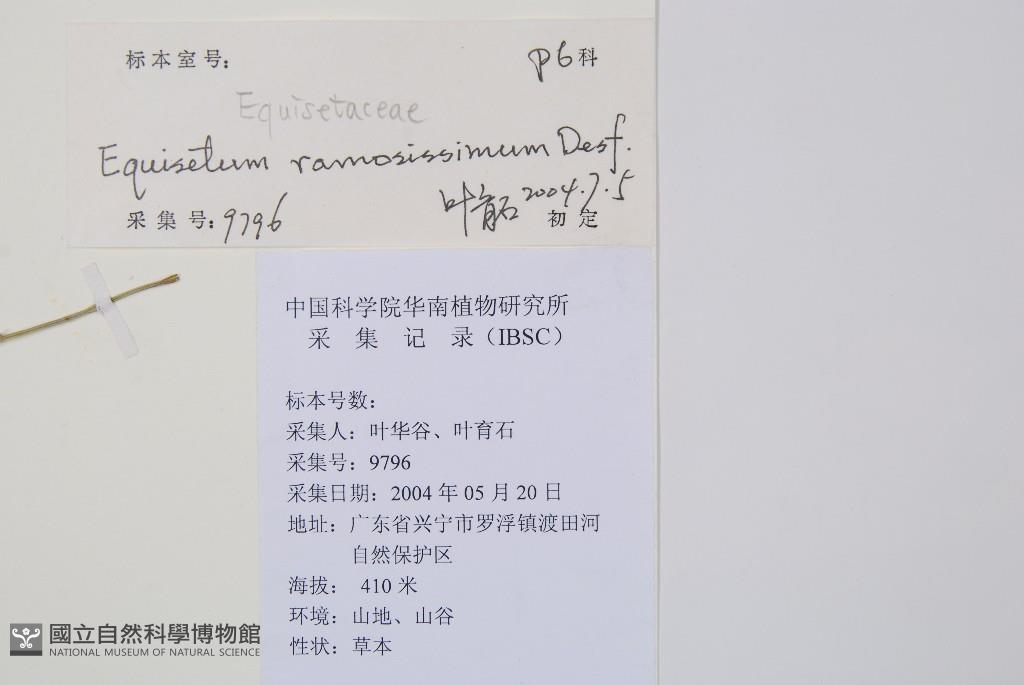 标本室号:
P6科
Equisetaceae
Equisetum ramosissimum Desf.
采集号: 9796
叶育石 2004.7.5
初定
中国科学院华南植物研究所
采 集 记 录（IBSC）
标本号数:
采集人: 叶华谷、叶育石
采集号: 9796
采集日期: 2004 年 05 月 20 日
地址: 广东省兴宁市罗浮镇渡田河
自然保护区
海拔: 410 米
环境: 山地、山谷
性状: 草本
國立自然科學博物館
NATIONAL MUSEUM OF NATURAL SCIENCE